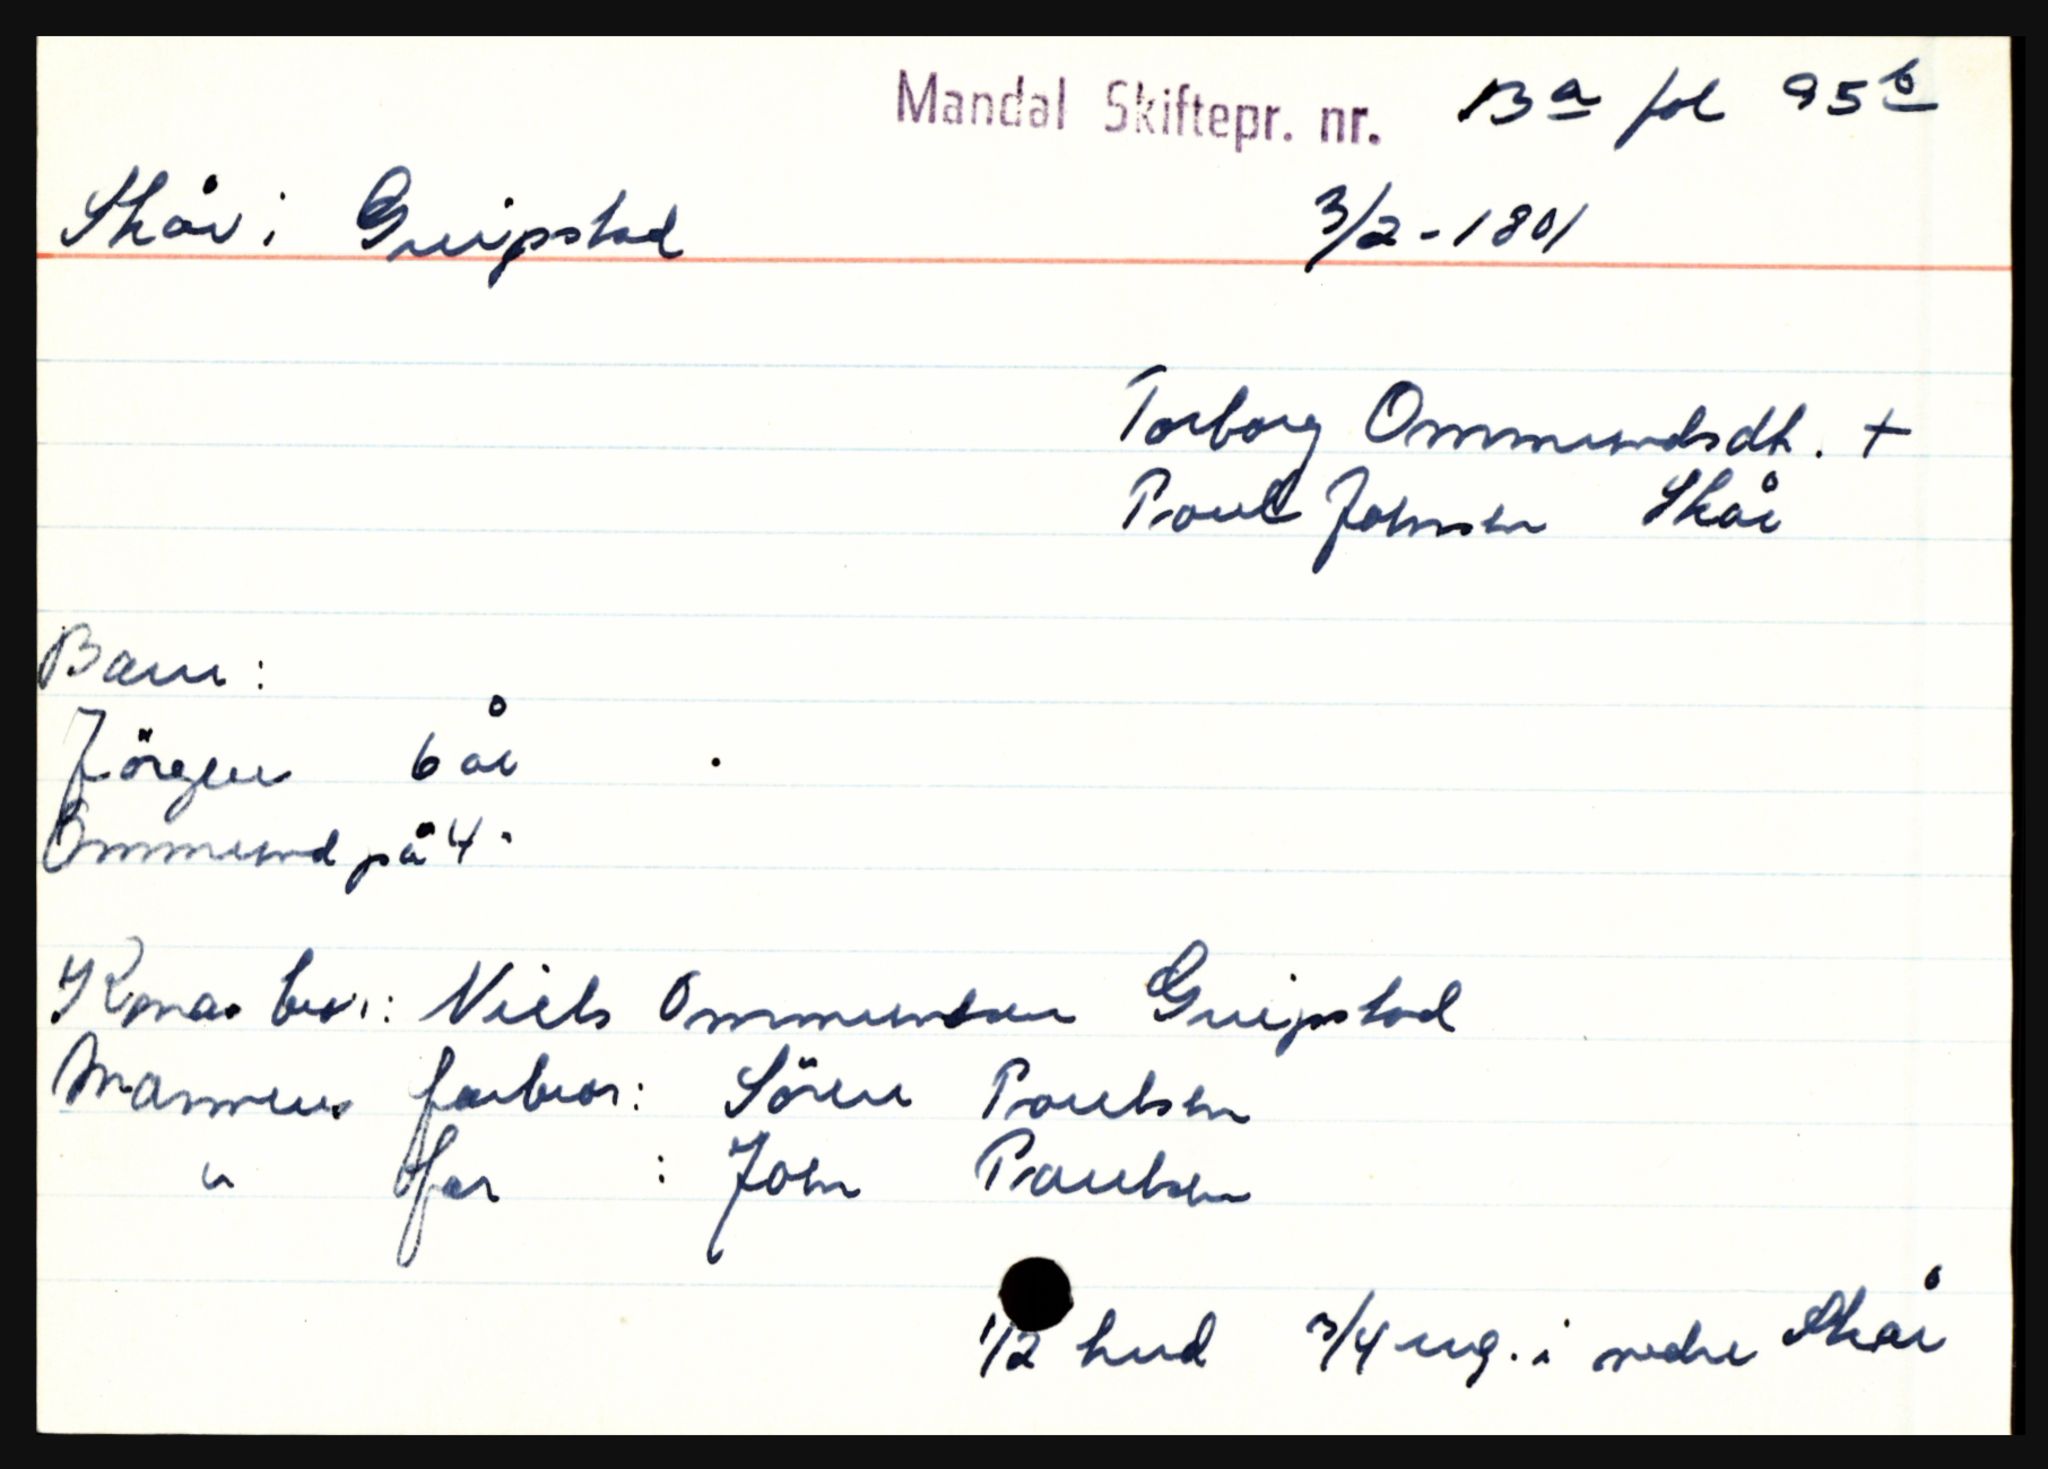 Mandal Skiftepr. nr. 13 a fol 95 b
Skår i Greipstad 3/2-1801
Torborg Ommundsdt. +
Poul Johnsen Skår
Barn:
Jörgen 6 år
Ommund på 4 "
Konas bror: Niels Ommundsen Greipstad
Mannens farbror: Sören Poulsen
" far : John Poulsen
1/2 hud 3/4 eng. i nedre Skår